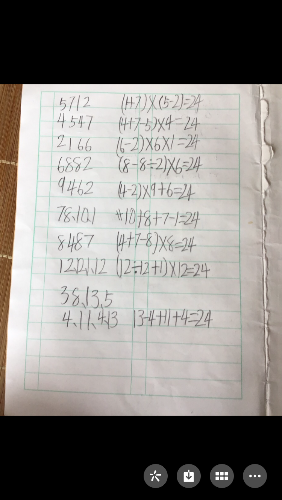 5712 (1+7)×(5-2)=24
4547 (4+7-5)×4=24
2166 (6-2)×6×1=24
6882 (8-8÷2)×6=24
9462 (4-2)×9+6=24
78,10,1 10+8+7-1=24
8487 (4+7-8)×8=24
12,12,1,12 (12÷12+1)×12=24
3 8,13,5
4,11,4,13 13-4+11+4=24